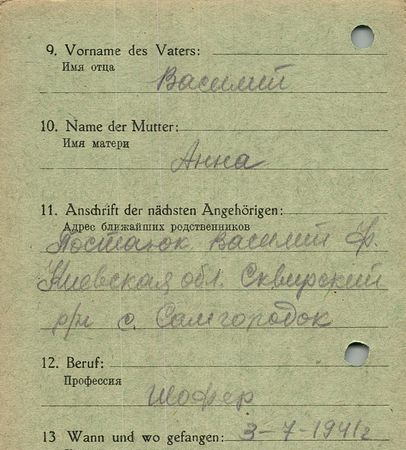 9. Vorname des Vaters:
Имя отца
Василий
10. Name der Mutter:
Имя матери
Анна
11. Anschrift der nächsten Angehörigen:
Адрес ближайших родственников
Василий Ф.
Киевская обл. Сквирский
р/н с. Самгородок
12. Beruf:
Профессия
Шофер
13 Wann und wo gefangen: 3-7-1941г